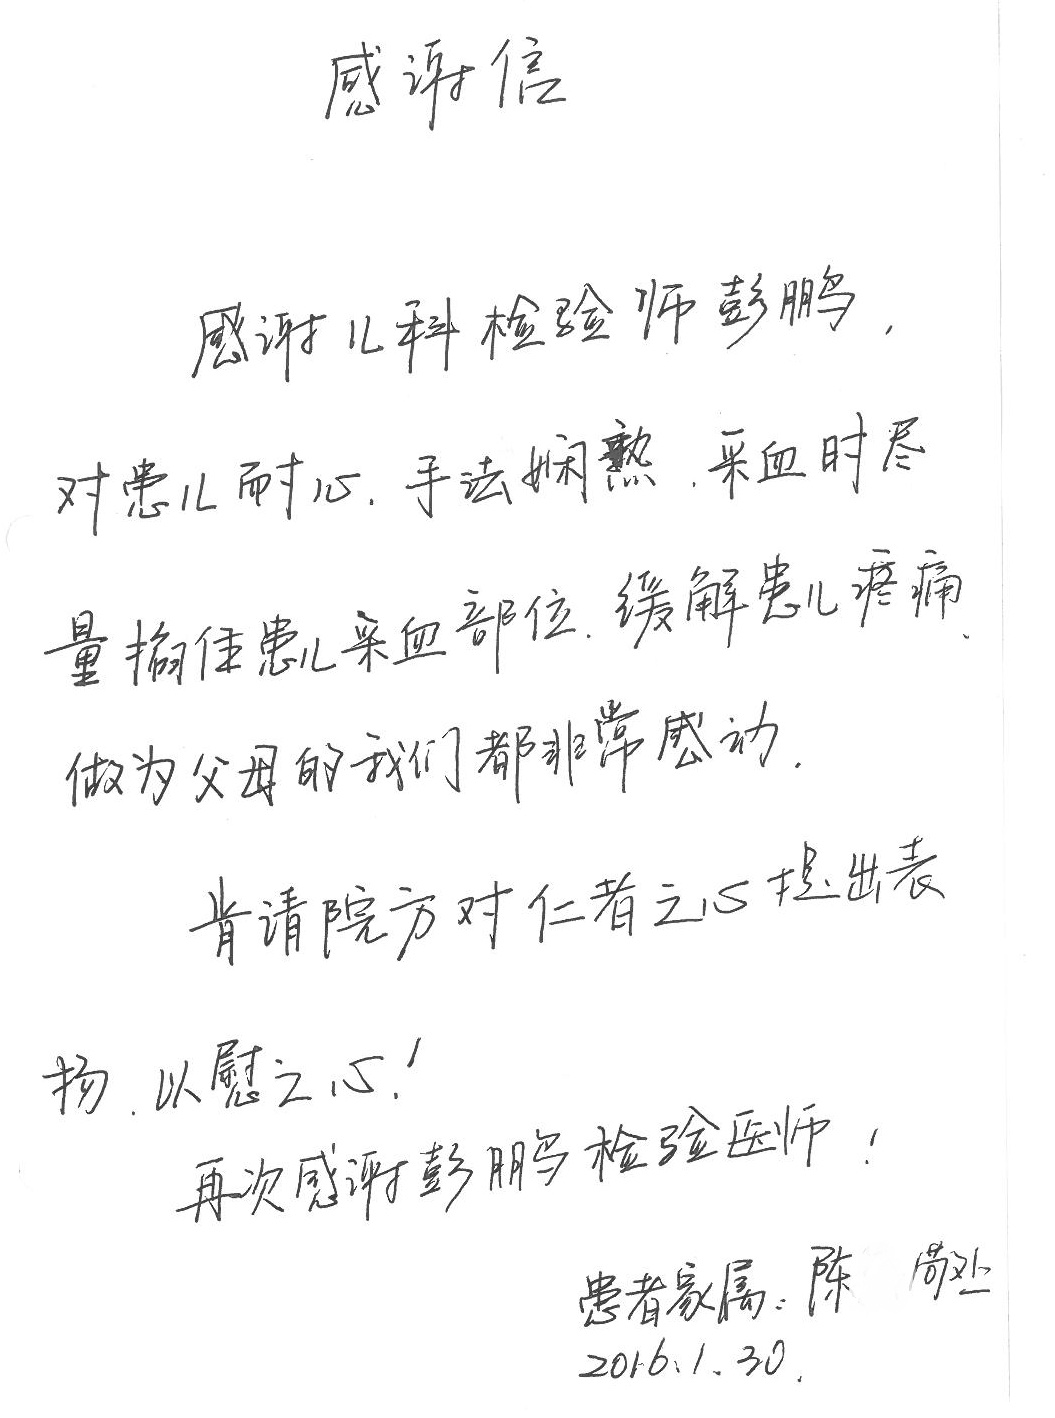 感谢信
感谢儿科检验师彭鹏，
对患儿耐心、手法娴熟、采血时尽
量掐住患儿采血部位、缓解患儿疼痛、
做为父母的我们都非常感动.
肯请院方对仁者之心提出表
扬、以慰之心!
再次感谢彭鹏检验医师!
患者家属:陈
2016.1.30.